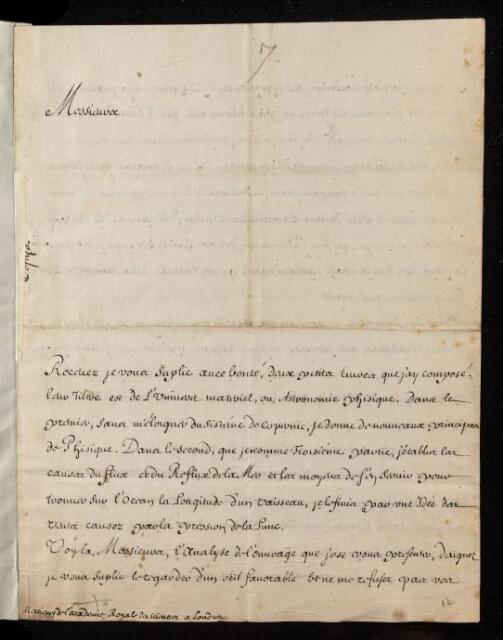 7
Messieurs
Copie.
Recevez je vous suplie avec bonté, deux petits livres que j'ay composé.
leur Titre est de L'Univers materiel, ou, Astronomie phisique. Dans le
premier, sans m'éloigner du sistéme de copernic, je donne de nouveaux principes
de Phisique. Dans le second, que je nomme Troisiéme partie, j'établis les
causes du flux et du Reflux de la Mer et les moyens de s'en servir pour
trouver sur l'Ocean la Longitude d'un vaisseau, je le finis par une Idée des
vents causez par la pression de la Lune.
Voyla, Messieurs, l'Analyse de l'ouvrage que j'ose vous presenter, daignez
je vous suplie le regarder d'un œil favorable et ne me refuser pas vos
Messieurs de l'academie Royale des sciences a Londres
12